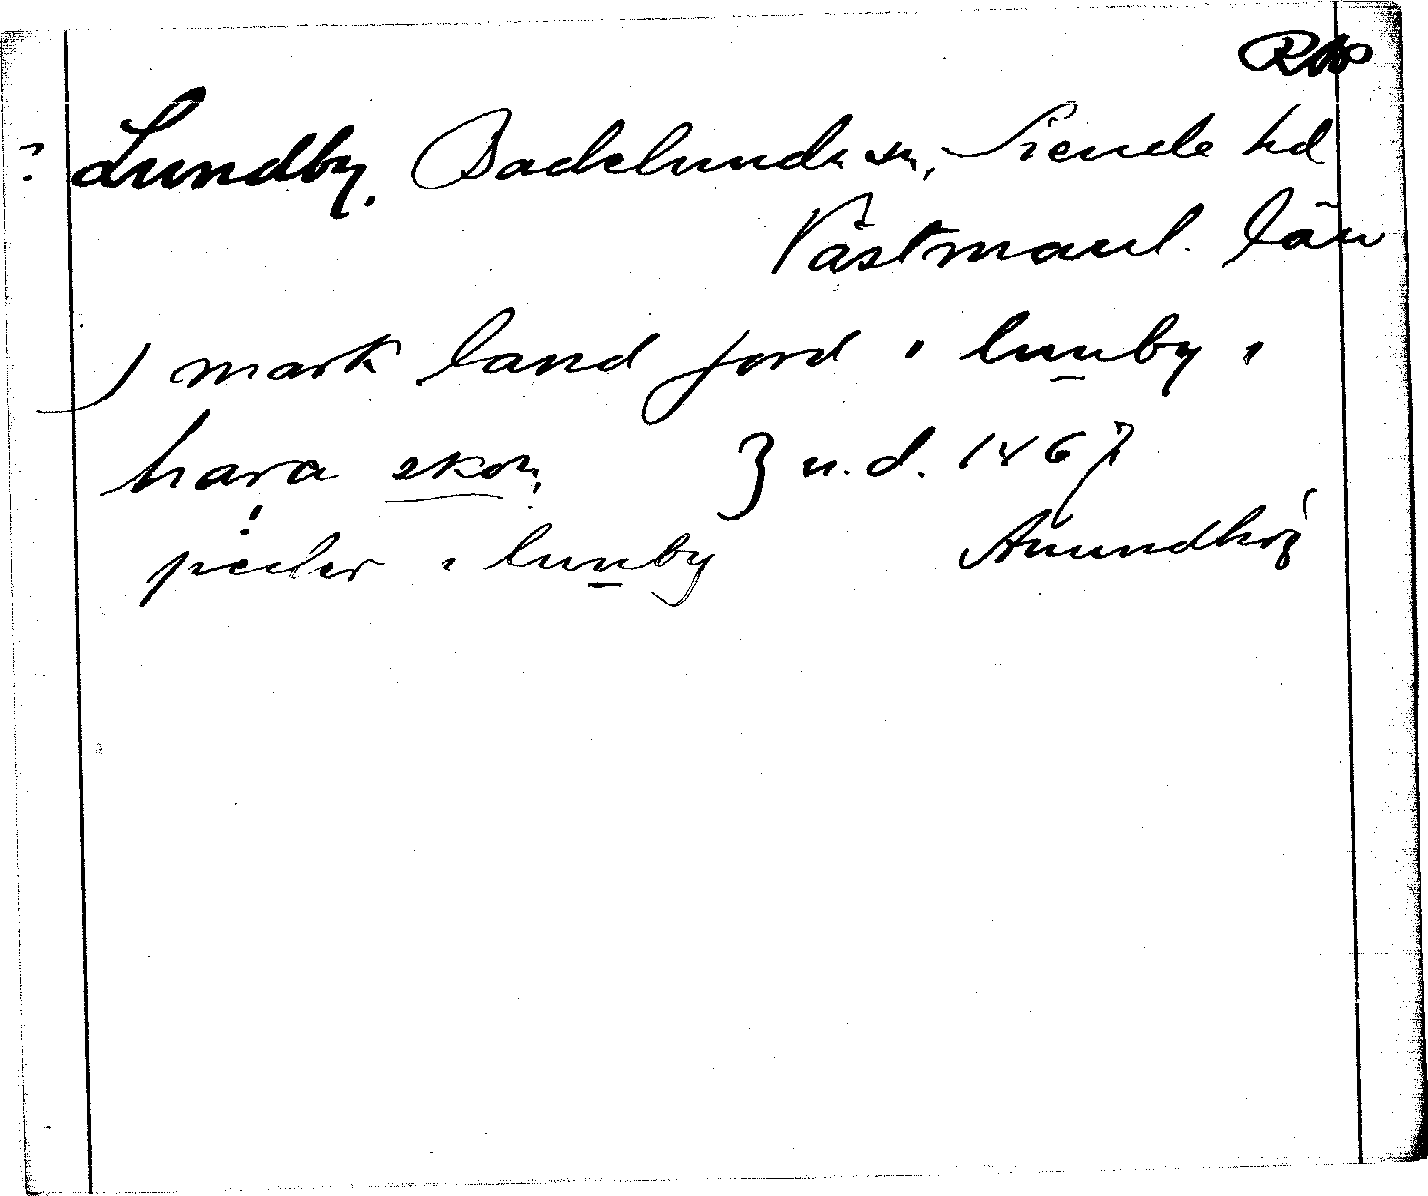 ? Lundby. Badelunda sn, Siende hd
Västmanl. län
j mark land jord i lunby i
hara skon
} u.d. 1467
peder i lunby
Anundhög